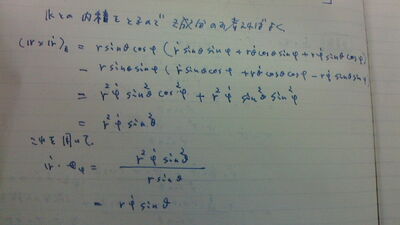 kとの内積をとるので z成分のみ考えればよく
(r×ṙ)_z = r sinθ cosφ ( ṙ sinθ sinφ + rθ̇ cosθ sinφ + rφ̇ sinθ cosφ )
− r sinθ sinφ ( ṙ sinθ cosφ + rθ̇ cosθ cosφ − rφ̇ sinθ sinφ )
= r²φ̇ sin²θ cos²φ + r²φ̇ sin²θ sin²φ
= r²φ̇ sin²θ
これを用いて、
ṙ・e_φ = r²φ̇ sin²θ / r sinθ
= rφ̇ sinθ